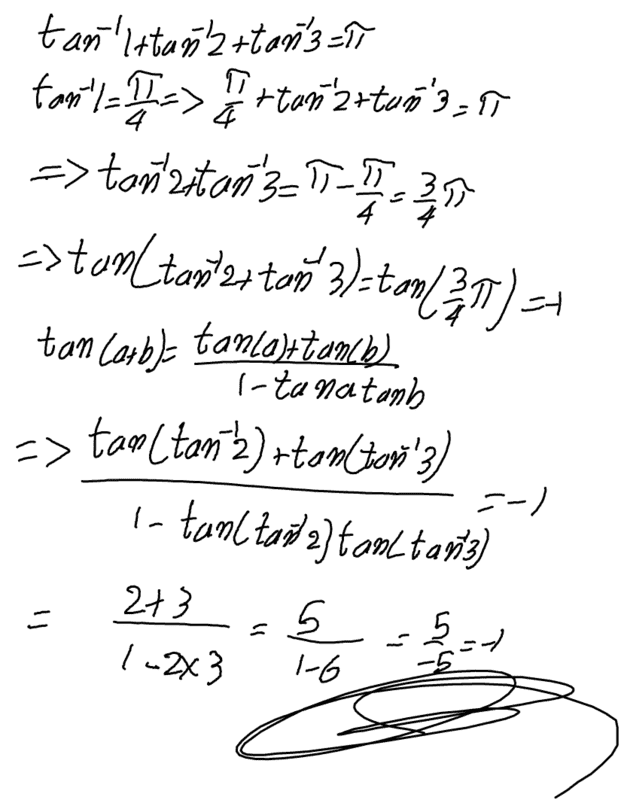 tan⁻¹1+tan⁻¹2+tan⁻¹3=π
tan⁻¹1=π/4=> π/4+tan⁻¹2+tan⁻¹3=π
=>tan⁻¹2+tan⁻¹3=π-π/4=3/4π
=>tan(tan⁻¹2+tan⁻¹3)=tan(3/4π)=-1
tan(a+b)=(tan(a)+tan(b))/(1-tanatanb)
=>(tan(tan⁻¹2)+tan(tan⁻¹3))/(1-tan(tan⁻¹2)tan(tan⁻¹3))=-1
=(2+3)/(1-2×3)=5/(1-6)=5/-5=-1